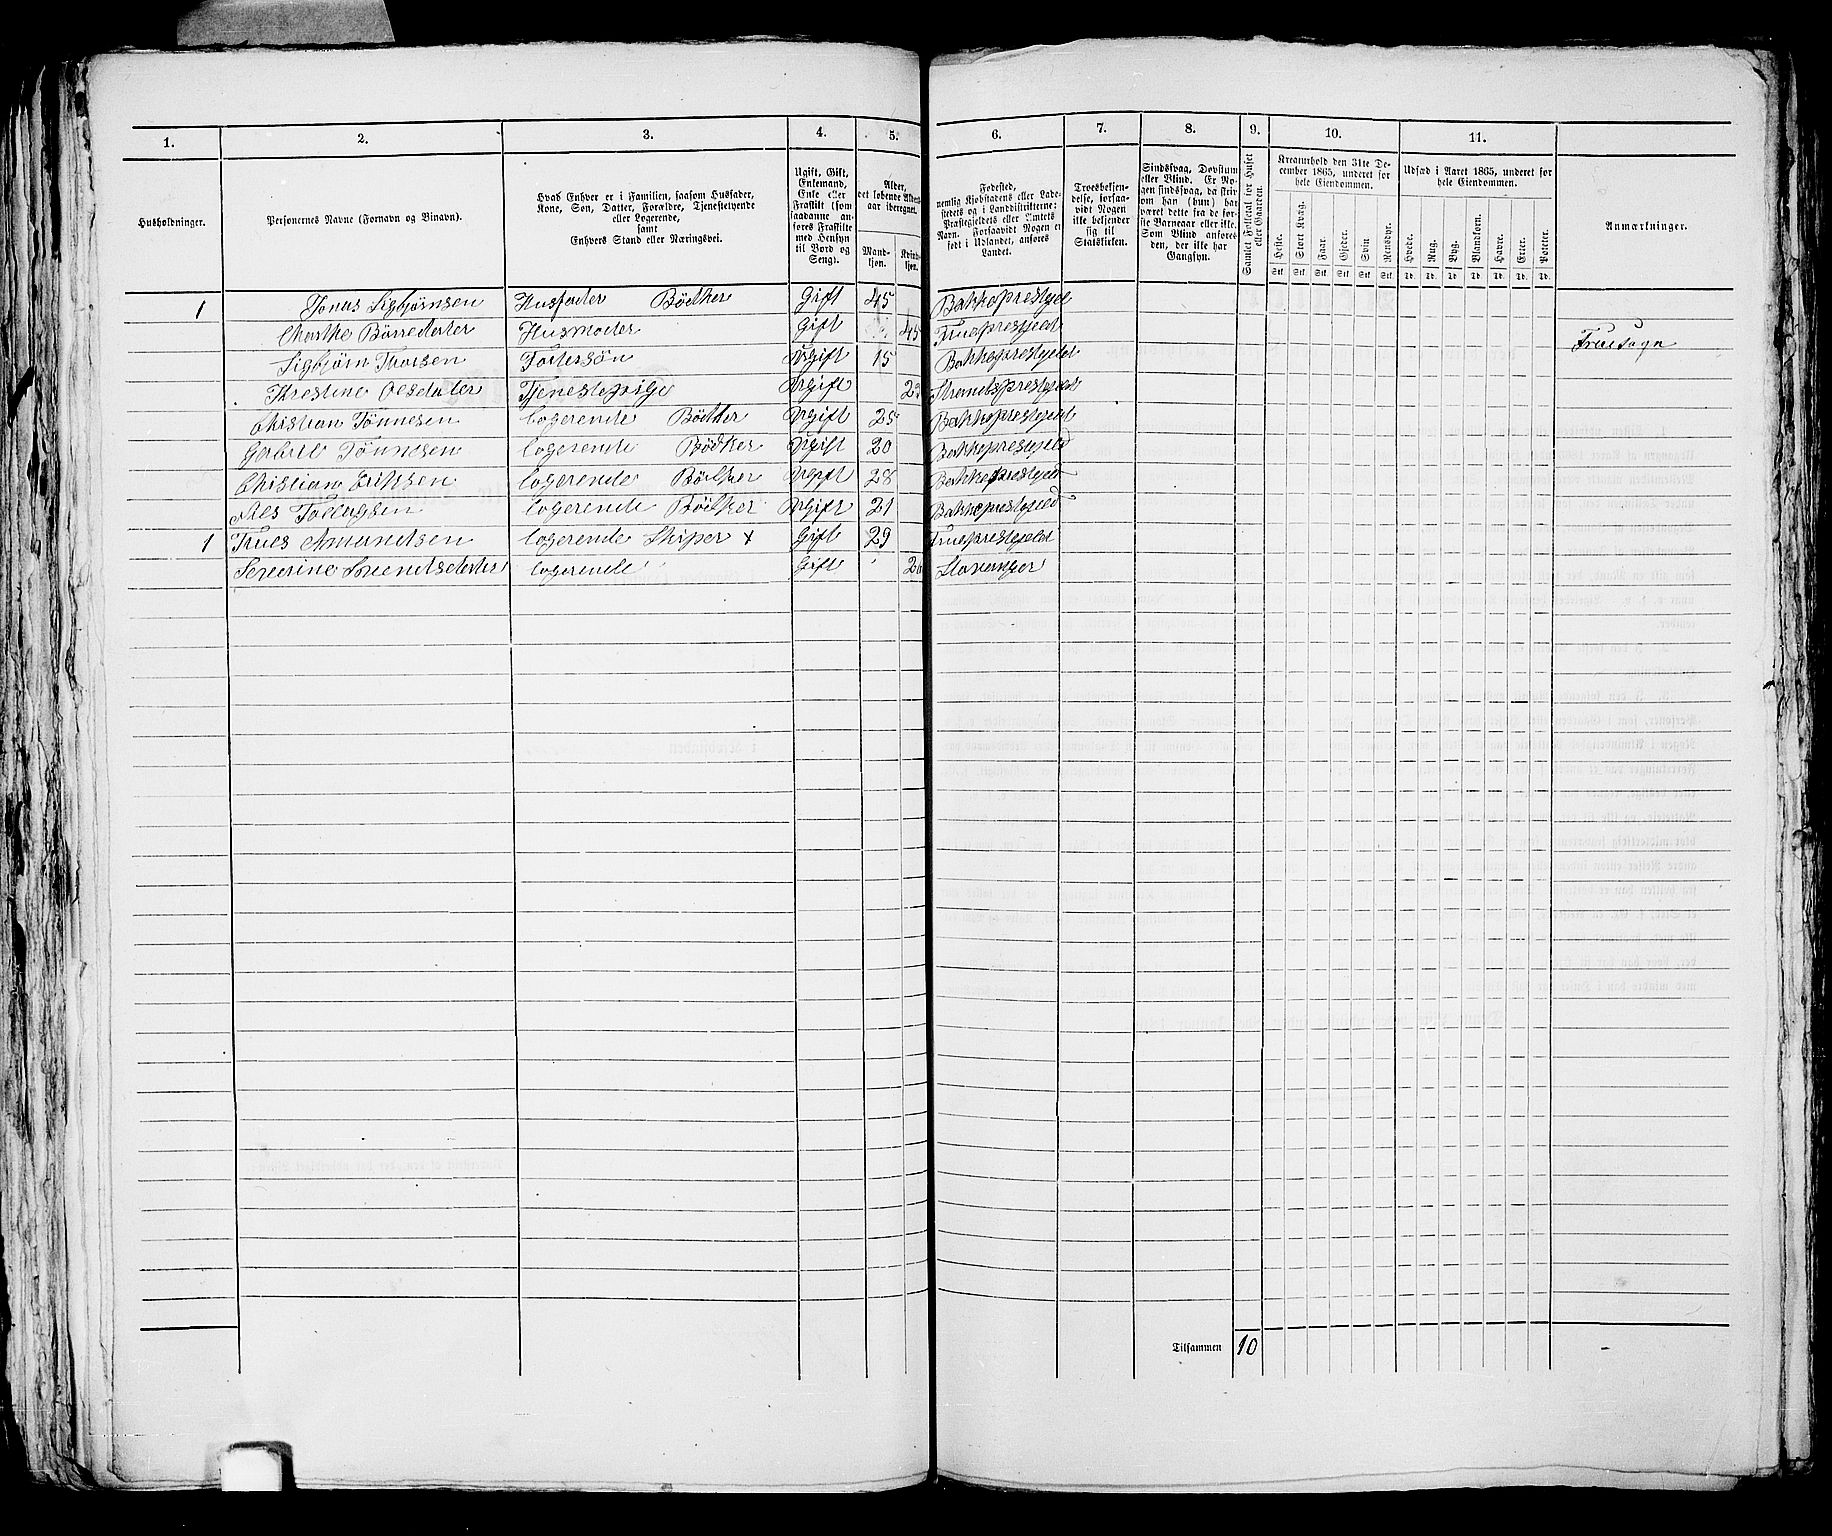 1. 2. 3. 4. 5. 6. 7. 8. 9. 10. 11.
Husholdninger.
Personernes Navne (Fornavn og Binavn).
Hvad Enhver er i Familien, saasom Husfader,
Kone, Søn, Datter, Forældre, Tjenestetyende
eller Logerende,
samt
Enhvers Stand eller Næringsvei.
Ugift, Gift,
Enkemand,
Enke eller
Fraskilt (som
saadanne an-
føres Fraskilte
med Hensyn
til Bord og
Seng).
Alder,
det løbende Alders-
aar iberegnet.
Mand-
kjøn.
Kvind-
kjøn.
Fødested,
nemlig Kjøbstadens eller Lade-
stedets og i Landdistrikterne:
Præstegjeldets eller Amtets
Navn. Forsaavidt Nogen er
født i Udlandet, anføres
Landet.
Troesbekjen-
delse, forsaa-
vidt Nogen
ikke bekjender
sig til
Statskirken.
Sindssvag, Døvstum
eller Blind. Er No-
gen sindssvag, da skriv
om han (hun) har
været dette fra de før-
ste Barneaar eller ikke.
Som Blind anføres
den, der ikke har
Gangsyn.
Samlet Folketal for Huset
eller Gaarden.
Kreaturhold den 31te De-
cember 1865, underet for
hele Eiendommen.
Heste. Stort Kvæg. Faar. Gjeder. Svin Rensdyr.
Stk. Stk. Stk. Stk. Stk. Stk.
Udsæd i Aaret 1865, underet for
hele Eiendommen.
Hvede. Rug. Byg. Blandkorn. Havre. Erter. Poteter.
Td. Td. Td. Td. Td. Td. Td.
Anmærkninger.
1 Jonas Sigbjørnsen Husfader Bödker Gift 45 Bakkeprestgjeld
Marthe Börredatter Husmoder Gift 45 Frueprestgjeld Fruesogn
Sigbjørn Thorsen Fostersøn Ugift 15 Bakkeprestgjeld
Kirestine Olsdater Tjenestepige Ugift Strandsprestgjeld
Christian Tönnesen logerende Bödker Ugift 25 Bakkeprestgjeld
Gabriel Tönnesen logerende Bödker Ugift 20 Bakkeprestgjeld
Christian Eriksen logerende Bödker Ugift 28 Bakkeprestgjeld
Nels Torlagsen logerende Bödker Ugift 21 Bakkeprestgjeld
1 Trues Amundsen logerende Skiper x Gift 29 Frueprestgjeld
Severine Svendsdatter logerende Gift Stavanger
Tilsammen 10